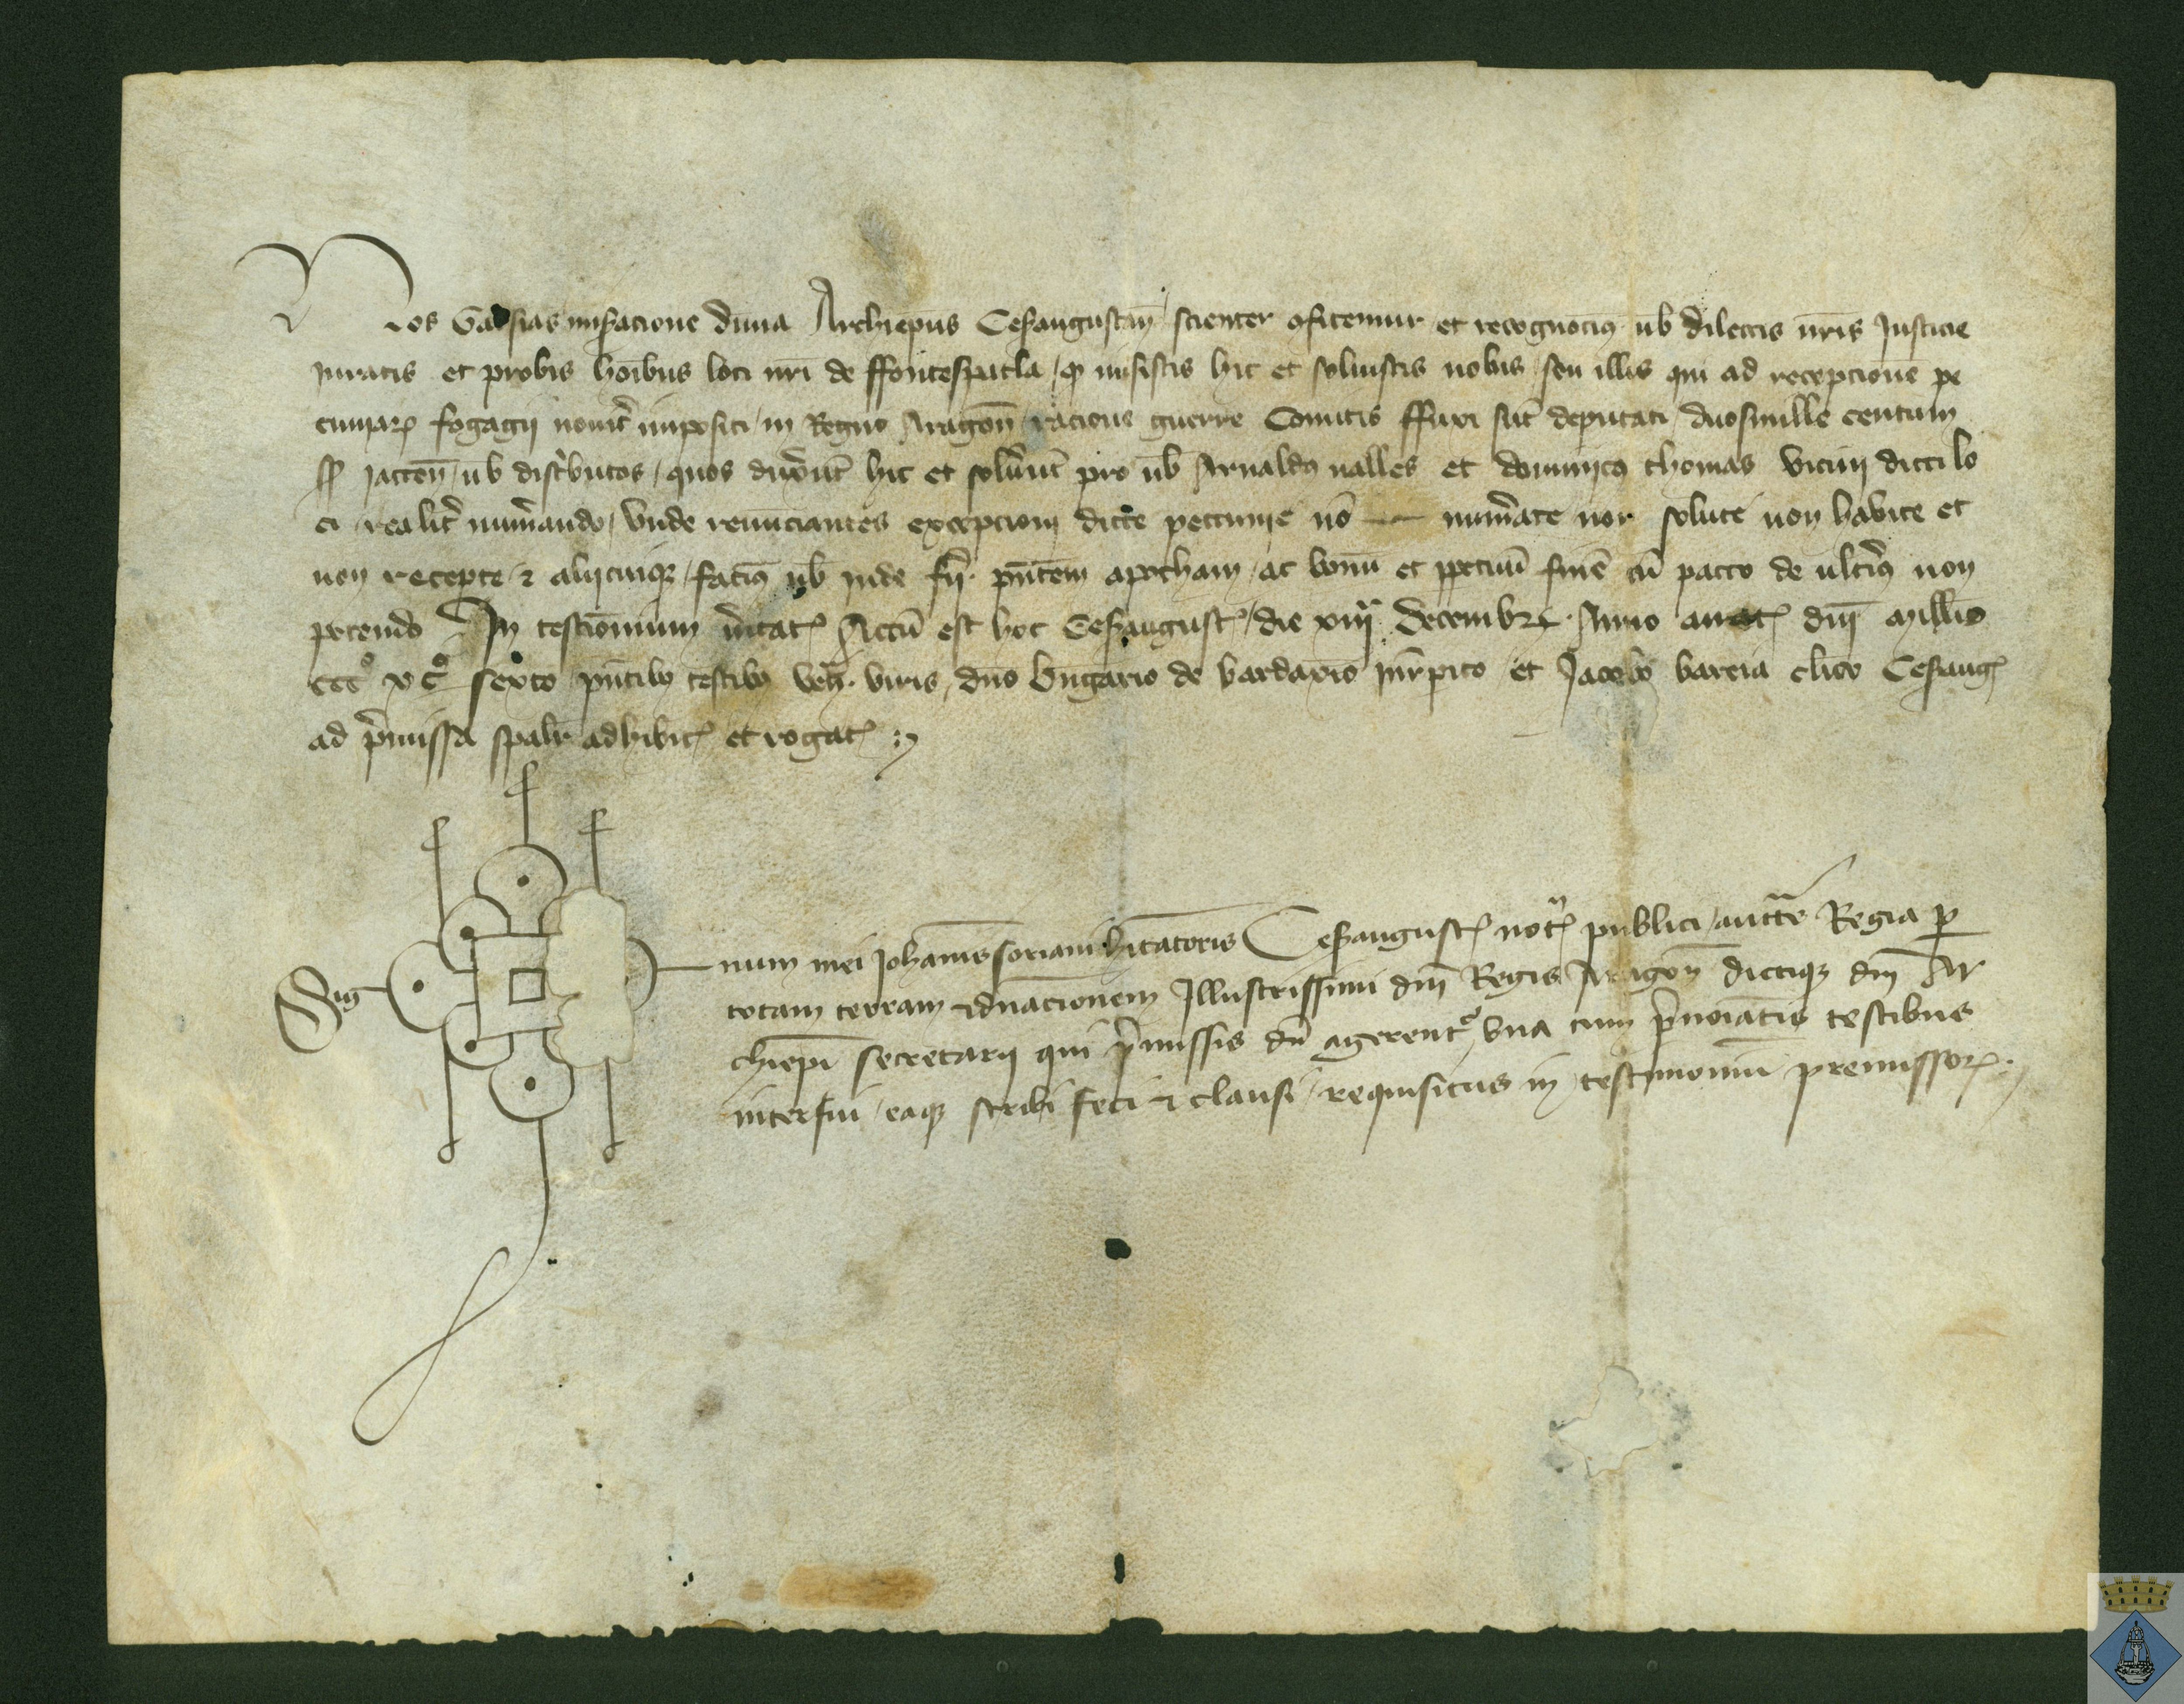 Nos Garsias misacione diuia Archiepus Cesaugustan scienter ofitemur et recognocim ub dilectis nris Justicie
juratis et probis hoibus loci nri de ffontespatla / qp misistis hic et soluistis nobis seu illis qui ad recepcione pe
cuniarz fogagij nouit imposici in Regno Aragon racione guerre Comitis ffuxi sut deputati duosmille centum
ss jaccen ub distbutos / quos duxut hic et soluut pro ub Arnaldo ualles et dominico thomas vicini dicti lo
ci realit numando / vnde renunciantes excepcioni dicte peccunie no numate nec solute non habite et
non recepte z alijcuiqz facim ub inde fij pntem apocham / ac bonu et ppetuu fine cu pacto de ulteri non
petendo In testionium uitat Actu est hoc Cesaugust die xiiij Decembr Anno a natt dni Millio
ccc xc sexto pntib testib veh viris dno bngario de bardaxio jurpito et Jacobo bareia clico Cesaug
ad pmissa spalr adhibit et rogat
Sig num mei Johanis soriani hitatoris Cesaugust not publici / auctte Regia p
totam terram z dnacionem Illustrissimi dni Regis Aragon dictiqz dni Ar
chiepi secretarij qui pmissis du agerent vna cum pnoiatis testibus
interfui / eaqz scribi feci z clausi / requisitus in testimoniu premissorz